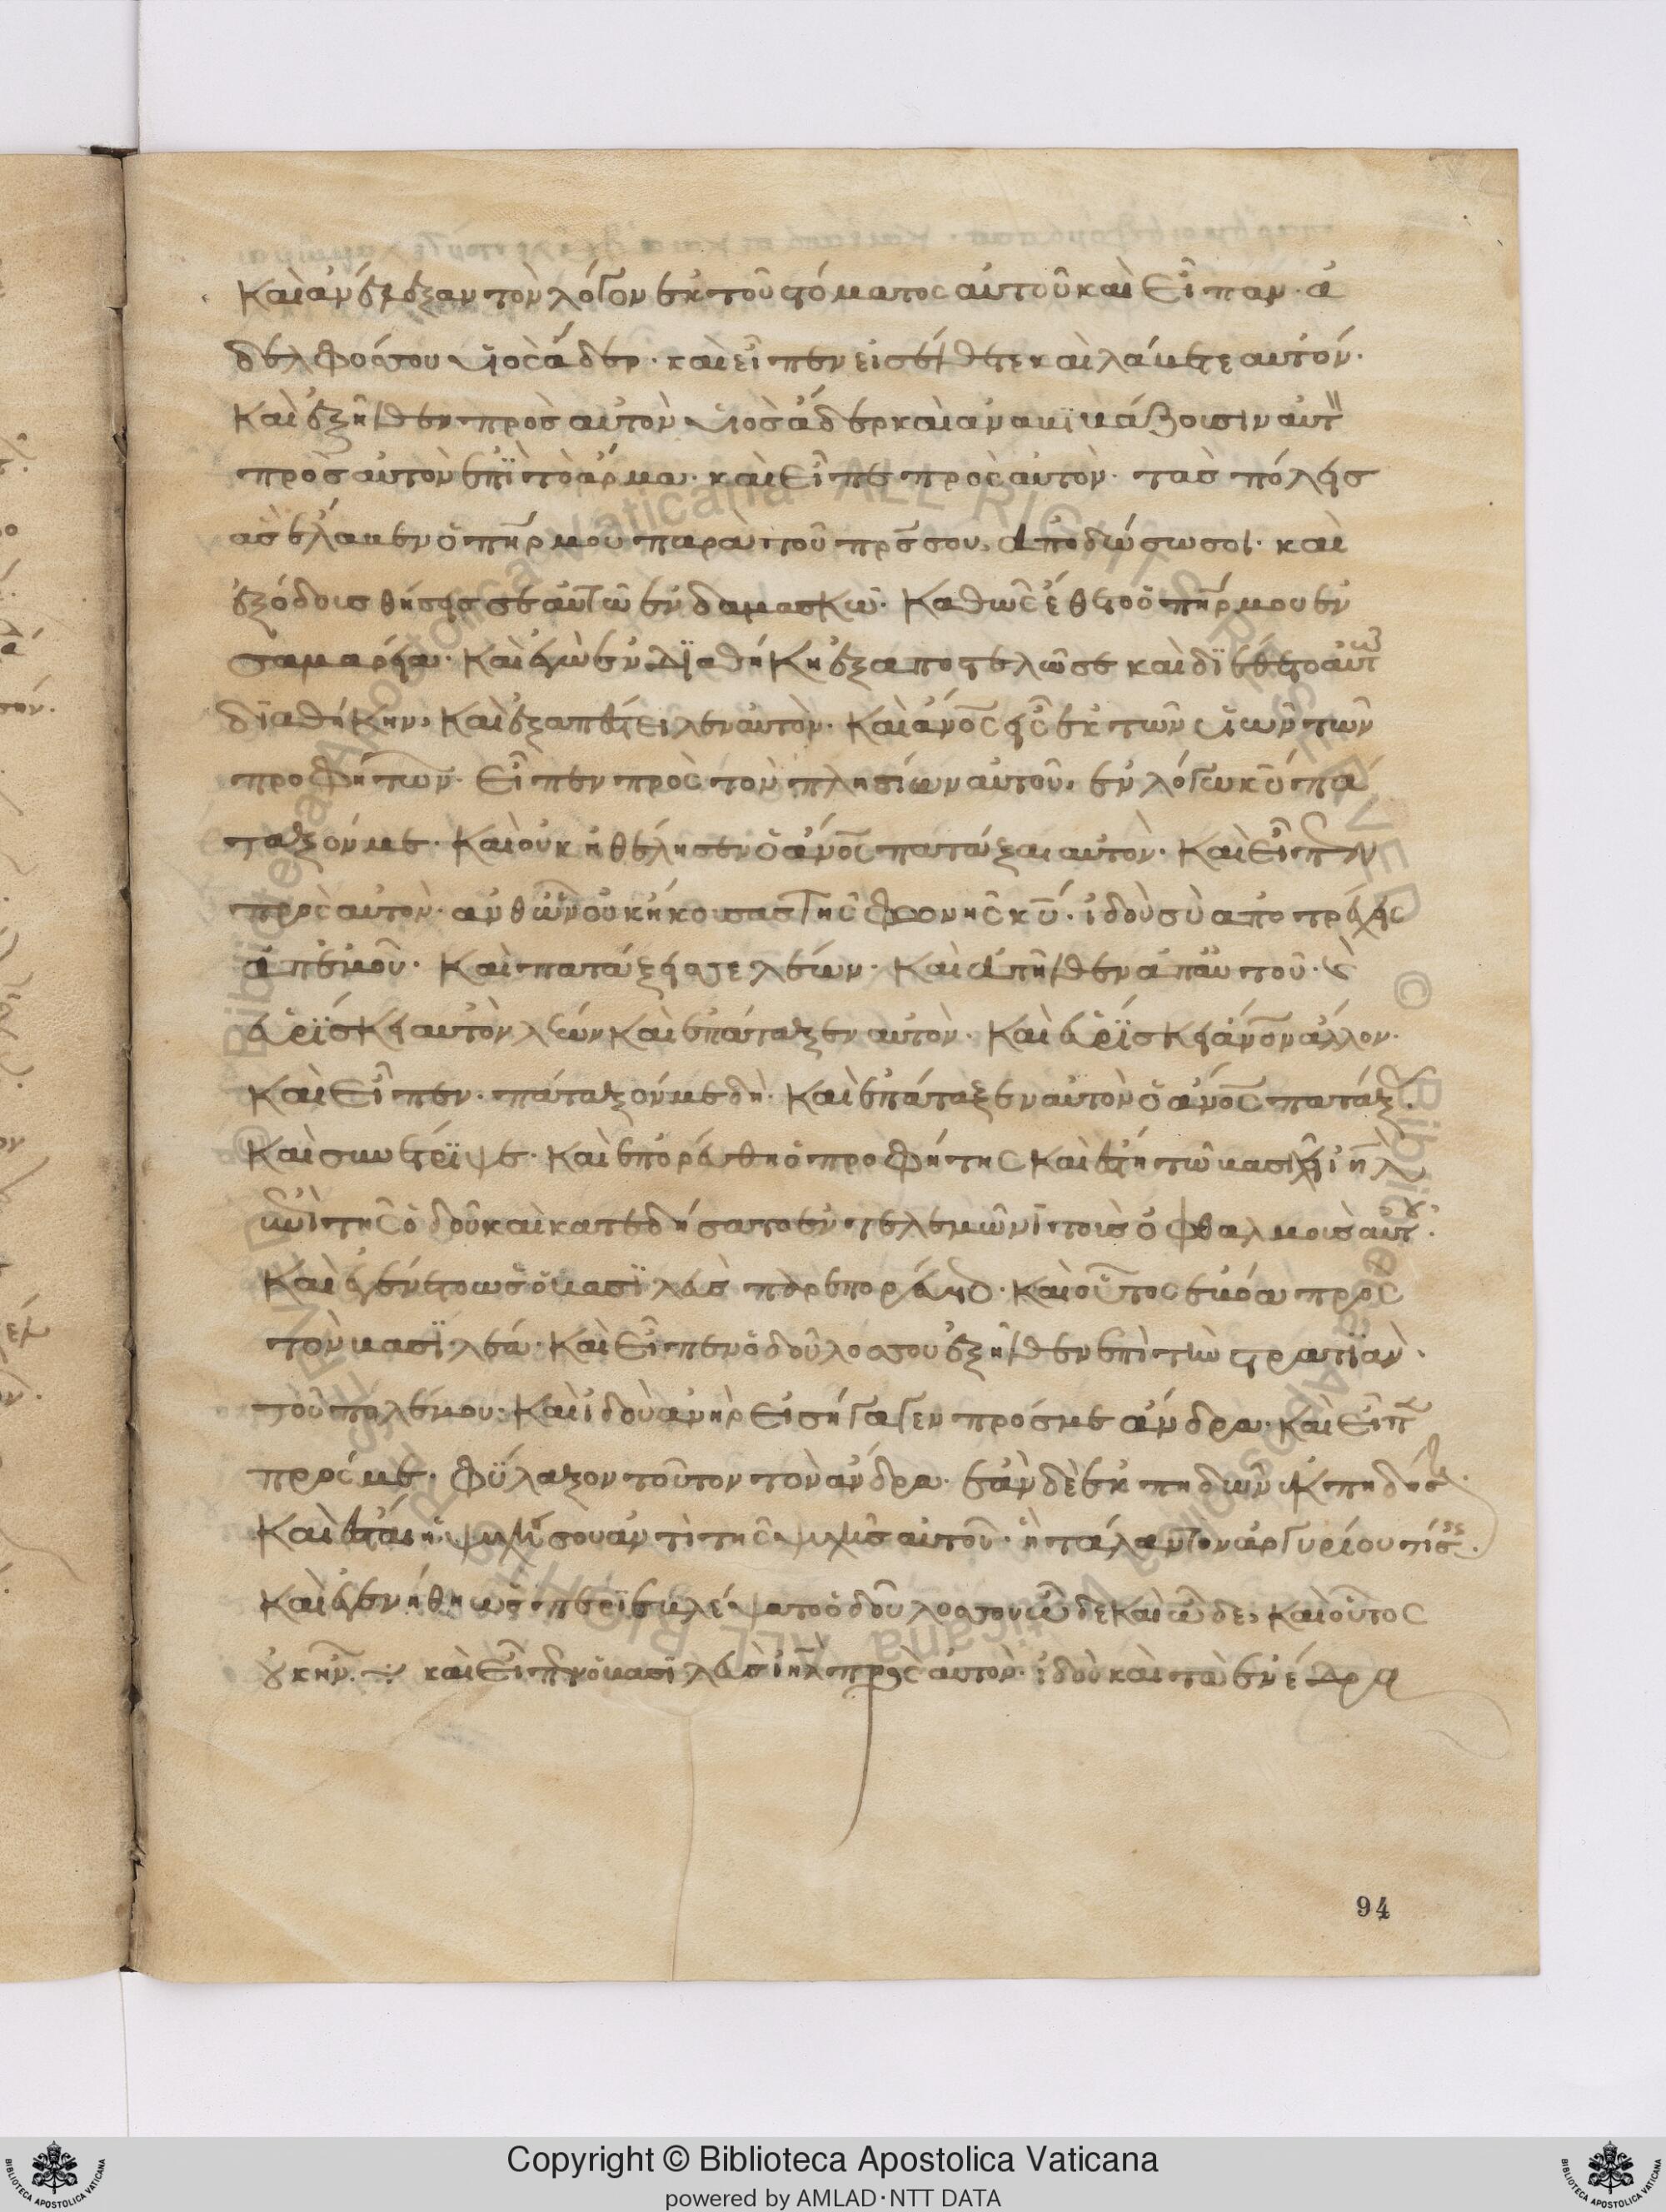 καὶ ἀνέλεξαν τὸν λόγον ἐκ τοῦ στόματος αὐτοῦ καὶ εἶπαν· ἀ
δελφόσ σου υἱὸς ἄδερ· καὶ εἶπεν εἰσέλθετε καὶ λάβετε αυτόν·
καὶ ἐξῆλθεν πρὸσ αὐτὸν υἱὸσ ἄδερ καὶ ἀναβϊβάζουσιν αὐτ
πρὸσ αὐτὸν ἐπῒ τὸ ἅρμα· καὶ εἶπε πρὸς αὐτὸν· τὰσ πόλεισ
ἃσ ἔλαβεν ὁ πη̅ρ μου παρὰ τοῦ πρ̅σ σου, ἀποδώσω σοι· καὶ
ἐξόδουσ θήσεισ σεαυτῶ ἐν δαμασκῶ· καθὼς ἔθετο ὁ πη̅ρ μου ἐν
σαμαρεία· καὶ ἐγὼ ἐν διαθήκη ἐξαποστελῶ σε καὶ δϊέθετο αὐτω
διαθήκην, καὶ ἐξαπέστειλεν αὐτὸν· καὶ ἄνο̅ς εἷς ἐκ τῶν υἱῶν τῶν
προφητῶν· εἶπεν πρὸς τὸν πλησίων αὐτοῦ, ἐν λόγω κ̅υ πά
ταξόν με· καὶ οὐκ ἠθέλησεν ὁ ἄνο̅ς πατάξαι αυτὸν· καὶ εἶπεν
πρὸς αὐτὸν· ανθῶν οὐκ ἤκουσασ τῆς φωνῆς κ̅υ· ἰδοὺ σὺ αποτρέχεις
ἀπ' ἐμοῦ· καὶ πατάξει σε λέων· καὶ ἀπῆλθεν ἀπ' αὐτοῦ· καὶ
εὑρΐσκει αυτὸν λέων καὶ ἐπάταξεν αὐτὸν· καὶ εὑρΐσκει ἄνο̅ν ἄλλον·
καὶ εἶπεν· πάταξόν με δὴ· καὶ ἐπάταξεν αὐτὸν ὁ ἄνο̅ς πατάξ·
καὶ συνέτρϊψε· καὶ ἐπορεύθη ὁ προφήτης καὶ ἔστη τῶ βασιλεῖ ιη̅λ
ἐπὶ τῆς ὁδοῦ καὶ κατεδήσατο ἐν τελεμῶνϊ τοὺσ ὀφθαλμοὺσ αὐτου·
καὶ ἐγένετο ὡσ ὁ βασϊλεὺσ παρεπορεύετο· καὶ οὗτος ἐβόα πρὸς
τὸν βασϊλέα· καὶ εἶπεν ὁ δοῦλοσ σου ἐξῆλθεν ἐπὶ τὴν στρατϊὰν·
τοῦ πολέμου· καὶ ἰδοὺ ἀνὴρ εἰσήγαγεν πρόσ με ἄνδρα· καὶ εἶπε
πρός με· φύλαξον τοῦτον τὸν ἄνδρα· ἐὰν δὲ ἐκπηδῶν ἐκπηδήσ·
καὶ ἔσται ἡ ψυχή σου ἀντὶ τῆς ψυχῆσ αὐτοῦ· ἢ τάλαντον ἀργυρίου στήσεις·
καὶ ἐγενήθη ὡσ περϊεβλέψατο ὁ δοῦλοσ σου ὧδε καὶ ὧδε, καὶ οὗτος
οὐκ ἦν· ÷ καὶ εἶπεν ὁ βασϊλεὺσ ιη̅λ πρὸς αὐτὸν· ἰδοὺ καὶ τὰ ἔνεδρα
94
Copyright © Biblioteca Apostolica Vaticana
powered by AMLAD·NTT DATA